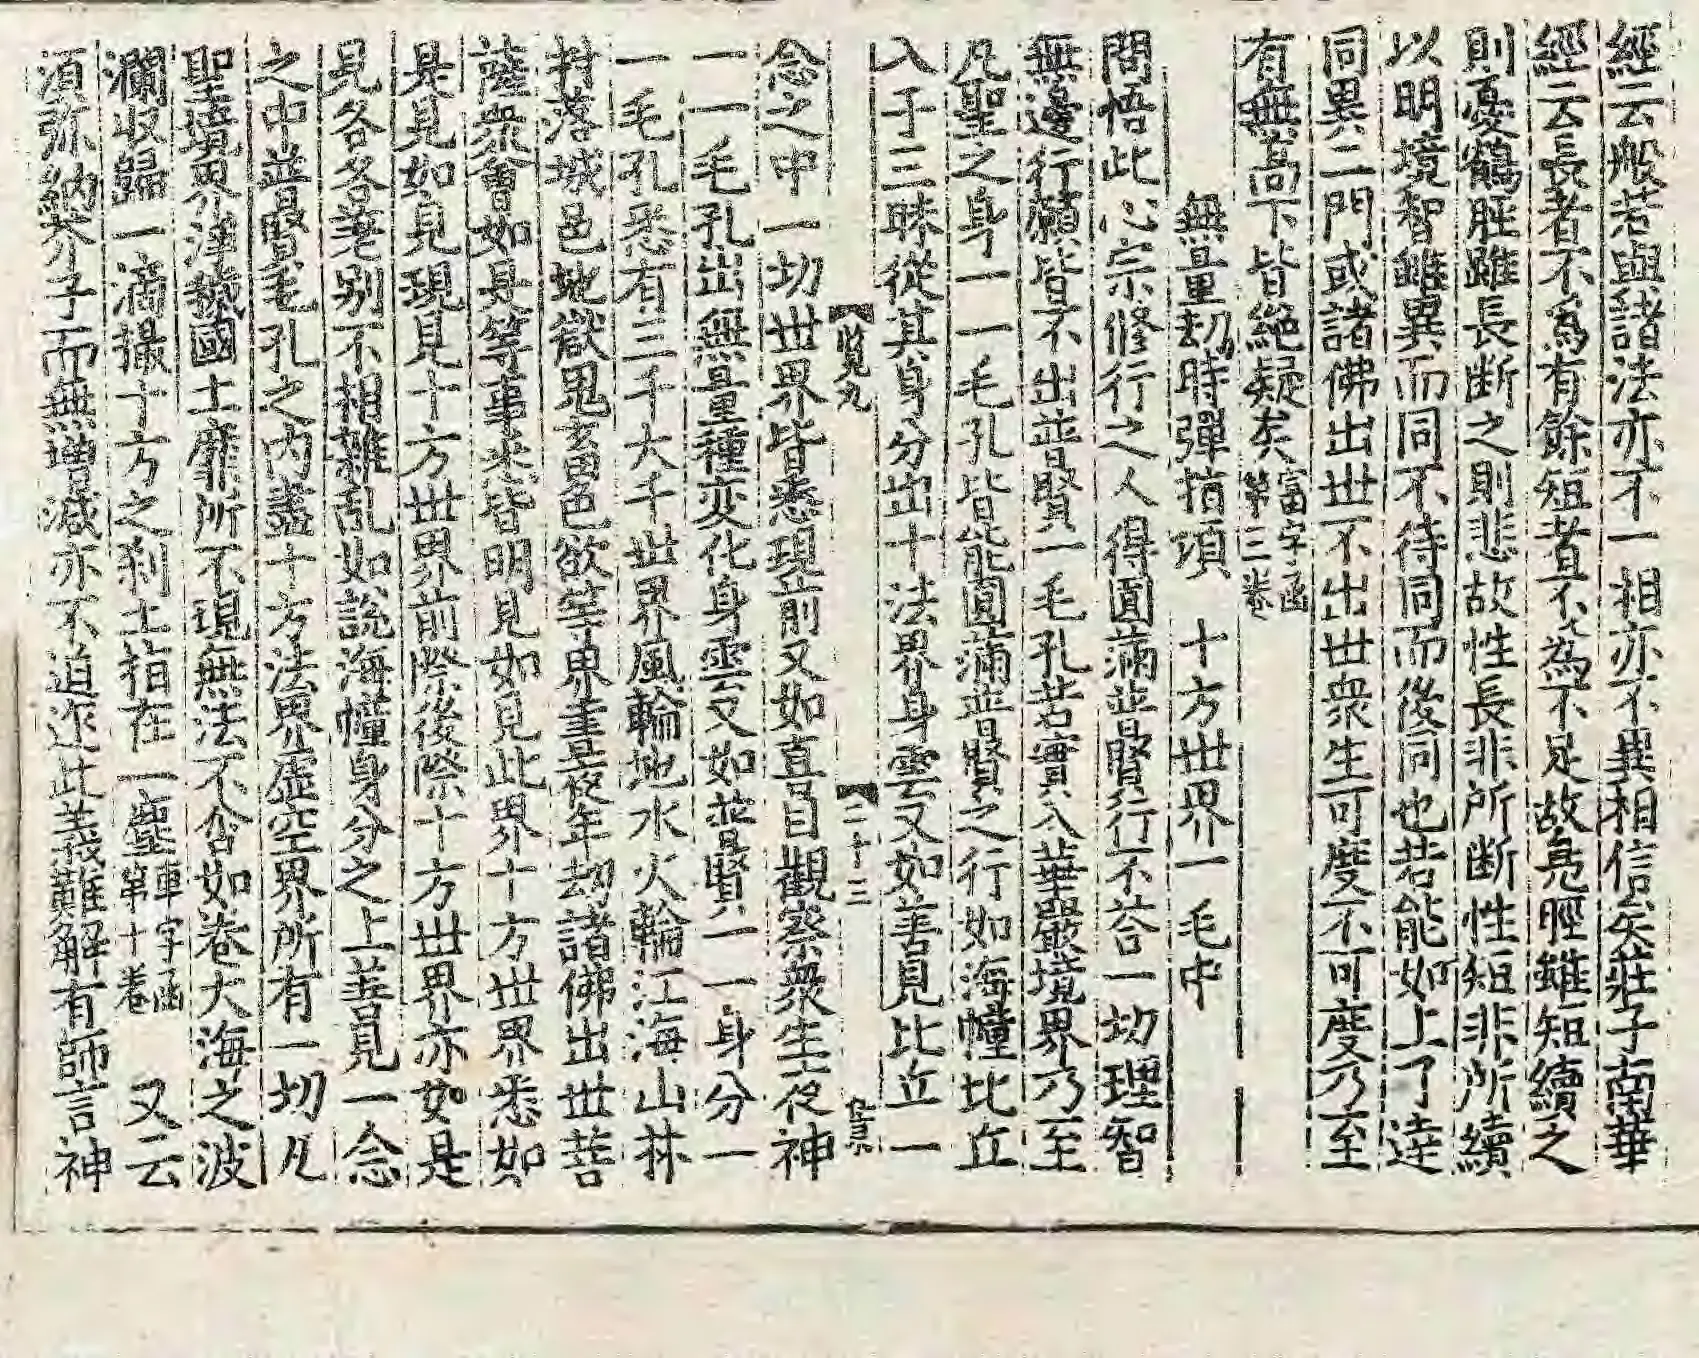 經云般若與諸法亦不一相亦不異相信矣莊子南華
經云長者不爲有餘短者不為不足故鳧脛雖短續之
則憂鶴脛雖長断之則悲故性長非所断性短非所續
以明境智雖異而同不待同而後同也若能如上了達
同異二門或諸佛出世不出世衆生可度不可度乃至
有無高下皆絶疑矣富字函第三卷
無量劫時彈指頃 十方世界一毛中
問悟此心宗修行之人得圓滿普賢行不荅一切理智
無邊行願皆不出普賢一毛孔若實入華嚴境界乃至
凡聖之身一一毛孔皆能圓滿普賢之行如海幢比丘
入于三昧從其身分出十法界身雲又如善見比丘一
覧九 二十三
念之中一切世界皆悉現前又如喜目觀察衆生夜神
一一毛孔出無量種变化身雲又如普賢一一身分一
一毛孔悉有三千大千世界風輪地水火輪江海山林
村落城邑地獄鬼畜色欲等界晝夜年劫諸佛出世菩
薩衆會如是等事悉皆明見如見此界十方世界悉如
是見如見現見十方世界前際後際十方世界亦如是
見各各差别不相雜乱如說海幢身分之上善見一念
之中普賢毛孔之内盡十方法界虛空界所有一切凡
聖境界淨穢國土靡所不現無法不含如卷大海之波
瀾収歸一滴撮十方之刹土指在一塵車字函第十卷 又云
湏弥納芥子而無增减亦不迫迮此義難解有師言神